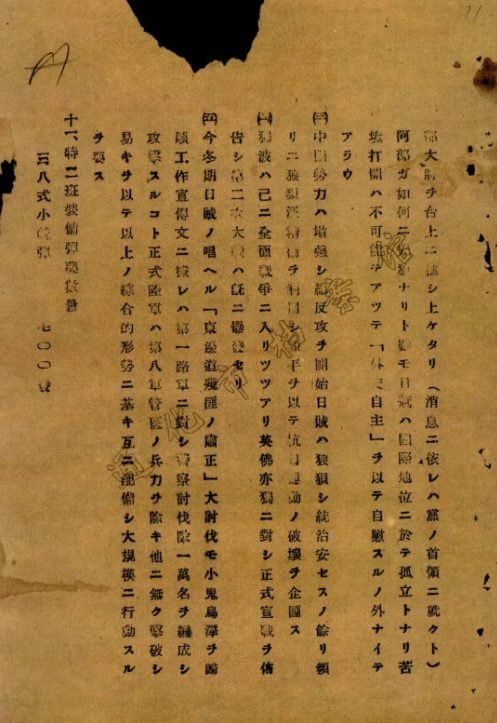 11
大將ヲ台上ニ シ上ケタリ（消息ニ依レハ黨ノ首領ニ就クト）
阿部ガ如何ニ ナリト モ日 ハ國際地位ニ於テ孤立トナリ苦
打開ハ不可能デアツテ「外交自主」ヲ以テ自慰スルノ外ナイテ
アラウ
㈡中國勢力ハ增强シ 反攻ヲ開始日賊ハ狼狽シ統治安セスノ餘リ頻
リニ 汪精衛ヲ利用シ 平ヲ以テ抗日運動ノ破壞ヲ企圖ス
㈢ 波ハ已ニ全面戰爭ニ入リツツアリ英佛亦獨ニ對シ正式宣戰ヲ佈
告シ第二次大戰ハ既ニ爆發セリ
㈣今冬期日賊ノ唱ヘル「東邊道殘匪ノ肅正」大討伐モ小鬼烏澤ヲ歸
順工作宣傳文ニ據レハ第一路軍ニ對シ警察討伐隊一萬名ヲ編成シ
攻擊スルコト正式陸軍ハ第八軍管區ノ兵力ヲ除キ他ニ無ク擊破シ
易キヲ以テ以上ノ綜合的形勢ニ基キ互ニ配備シ大規模ニ行動スル
ヲ要ス
十一、特二班裝備彈藥數量
三八式小銃彈 七〇〇發
通化市档